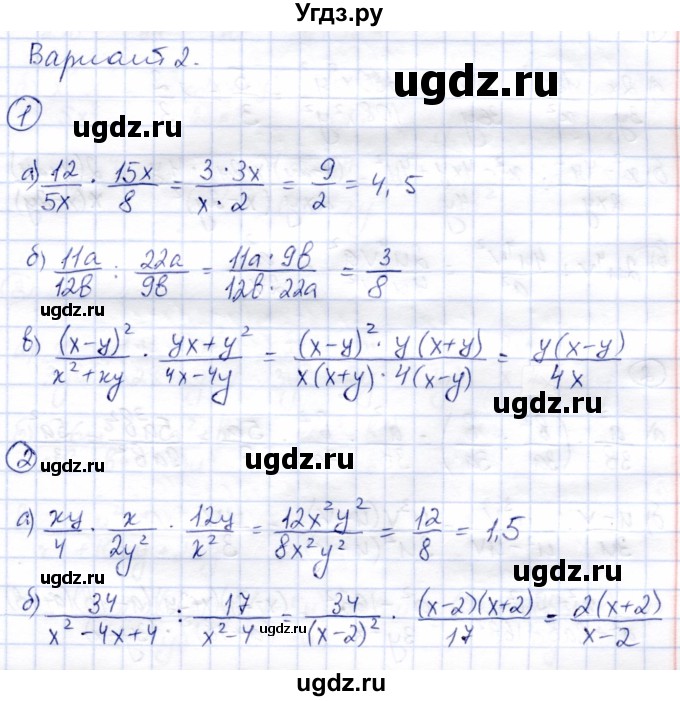 Угдз.ру
Вариант 2.
ugdz.ru
1
ugdz.ru
а) 12/5x · 15x/8 = 3·3x/x·2 = 9/2 = 4,5
б) 11a/12b : 22a/9b = 11a·9b/12b·22a = 3/8
в) (x-y)²/x²+xy · yx+y²/4x-4y = (x-y)²·y(x+y)/x(x+y)·4(x-y) = y(x-y)/4x
ugdz.ru
2
ugdz.ru
ugdz.ru
а) xy/4 · x/2y² · 12y/x² = 12x²y²/8x²y² = 12/8 = 1,5
ugdz.ru
ugdz.ru
б) 34/x²-4x+4 : 17/x²-4 = 34/(x-2)² · (x-2)(x+2)/17 = 2(x+2)/x-2
ugdz.ru
ugdz.ru
ugdz.ru